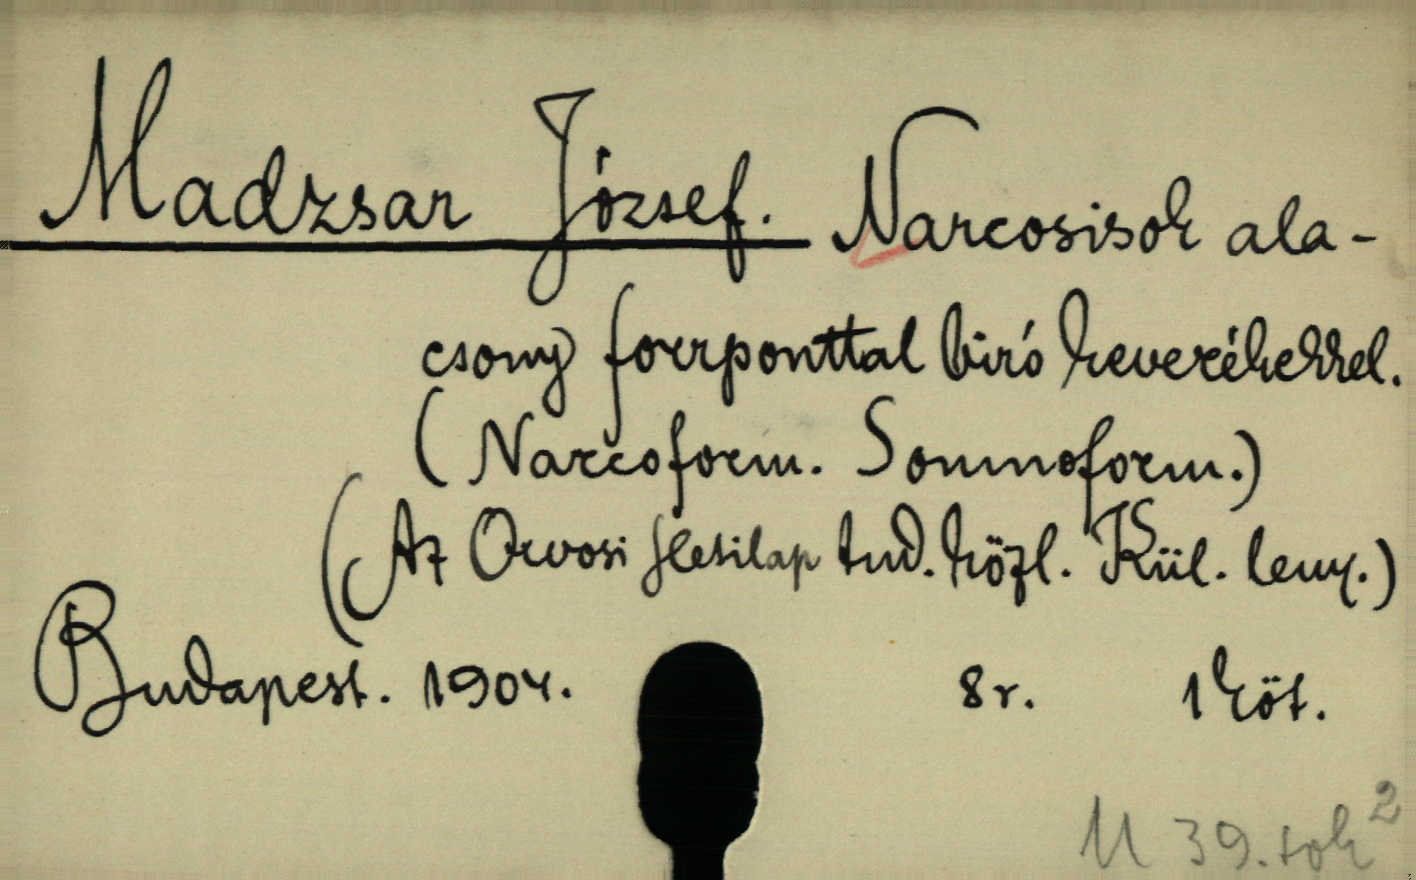 Madzsar József. Narcosisok ala-
csony forrponttal biró keverékekkel.
(Narcoform. Somnoform.)
(Az Orvosi Hetilap tud. közl. Kül. leny.)
Budapest. 1904. 8r. 1 köt.
M 39. sok²